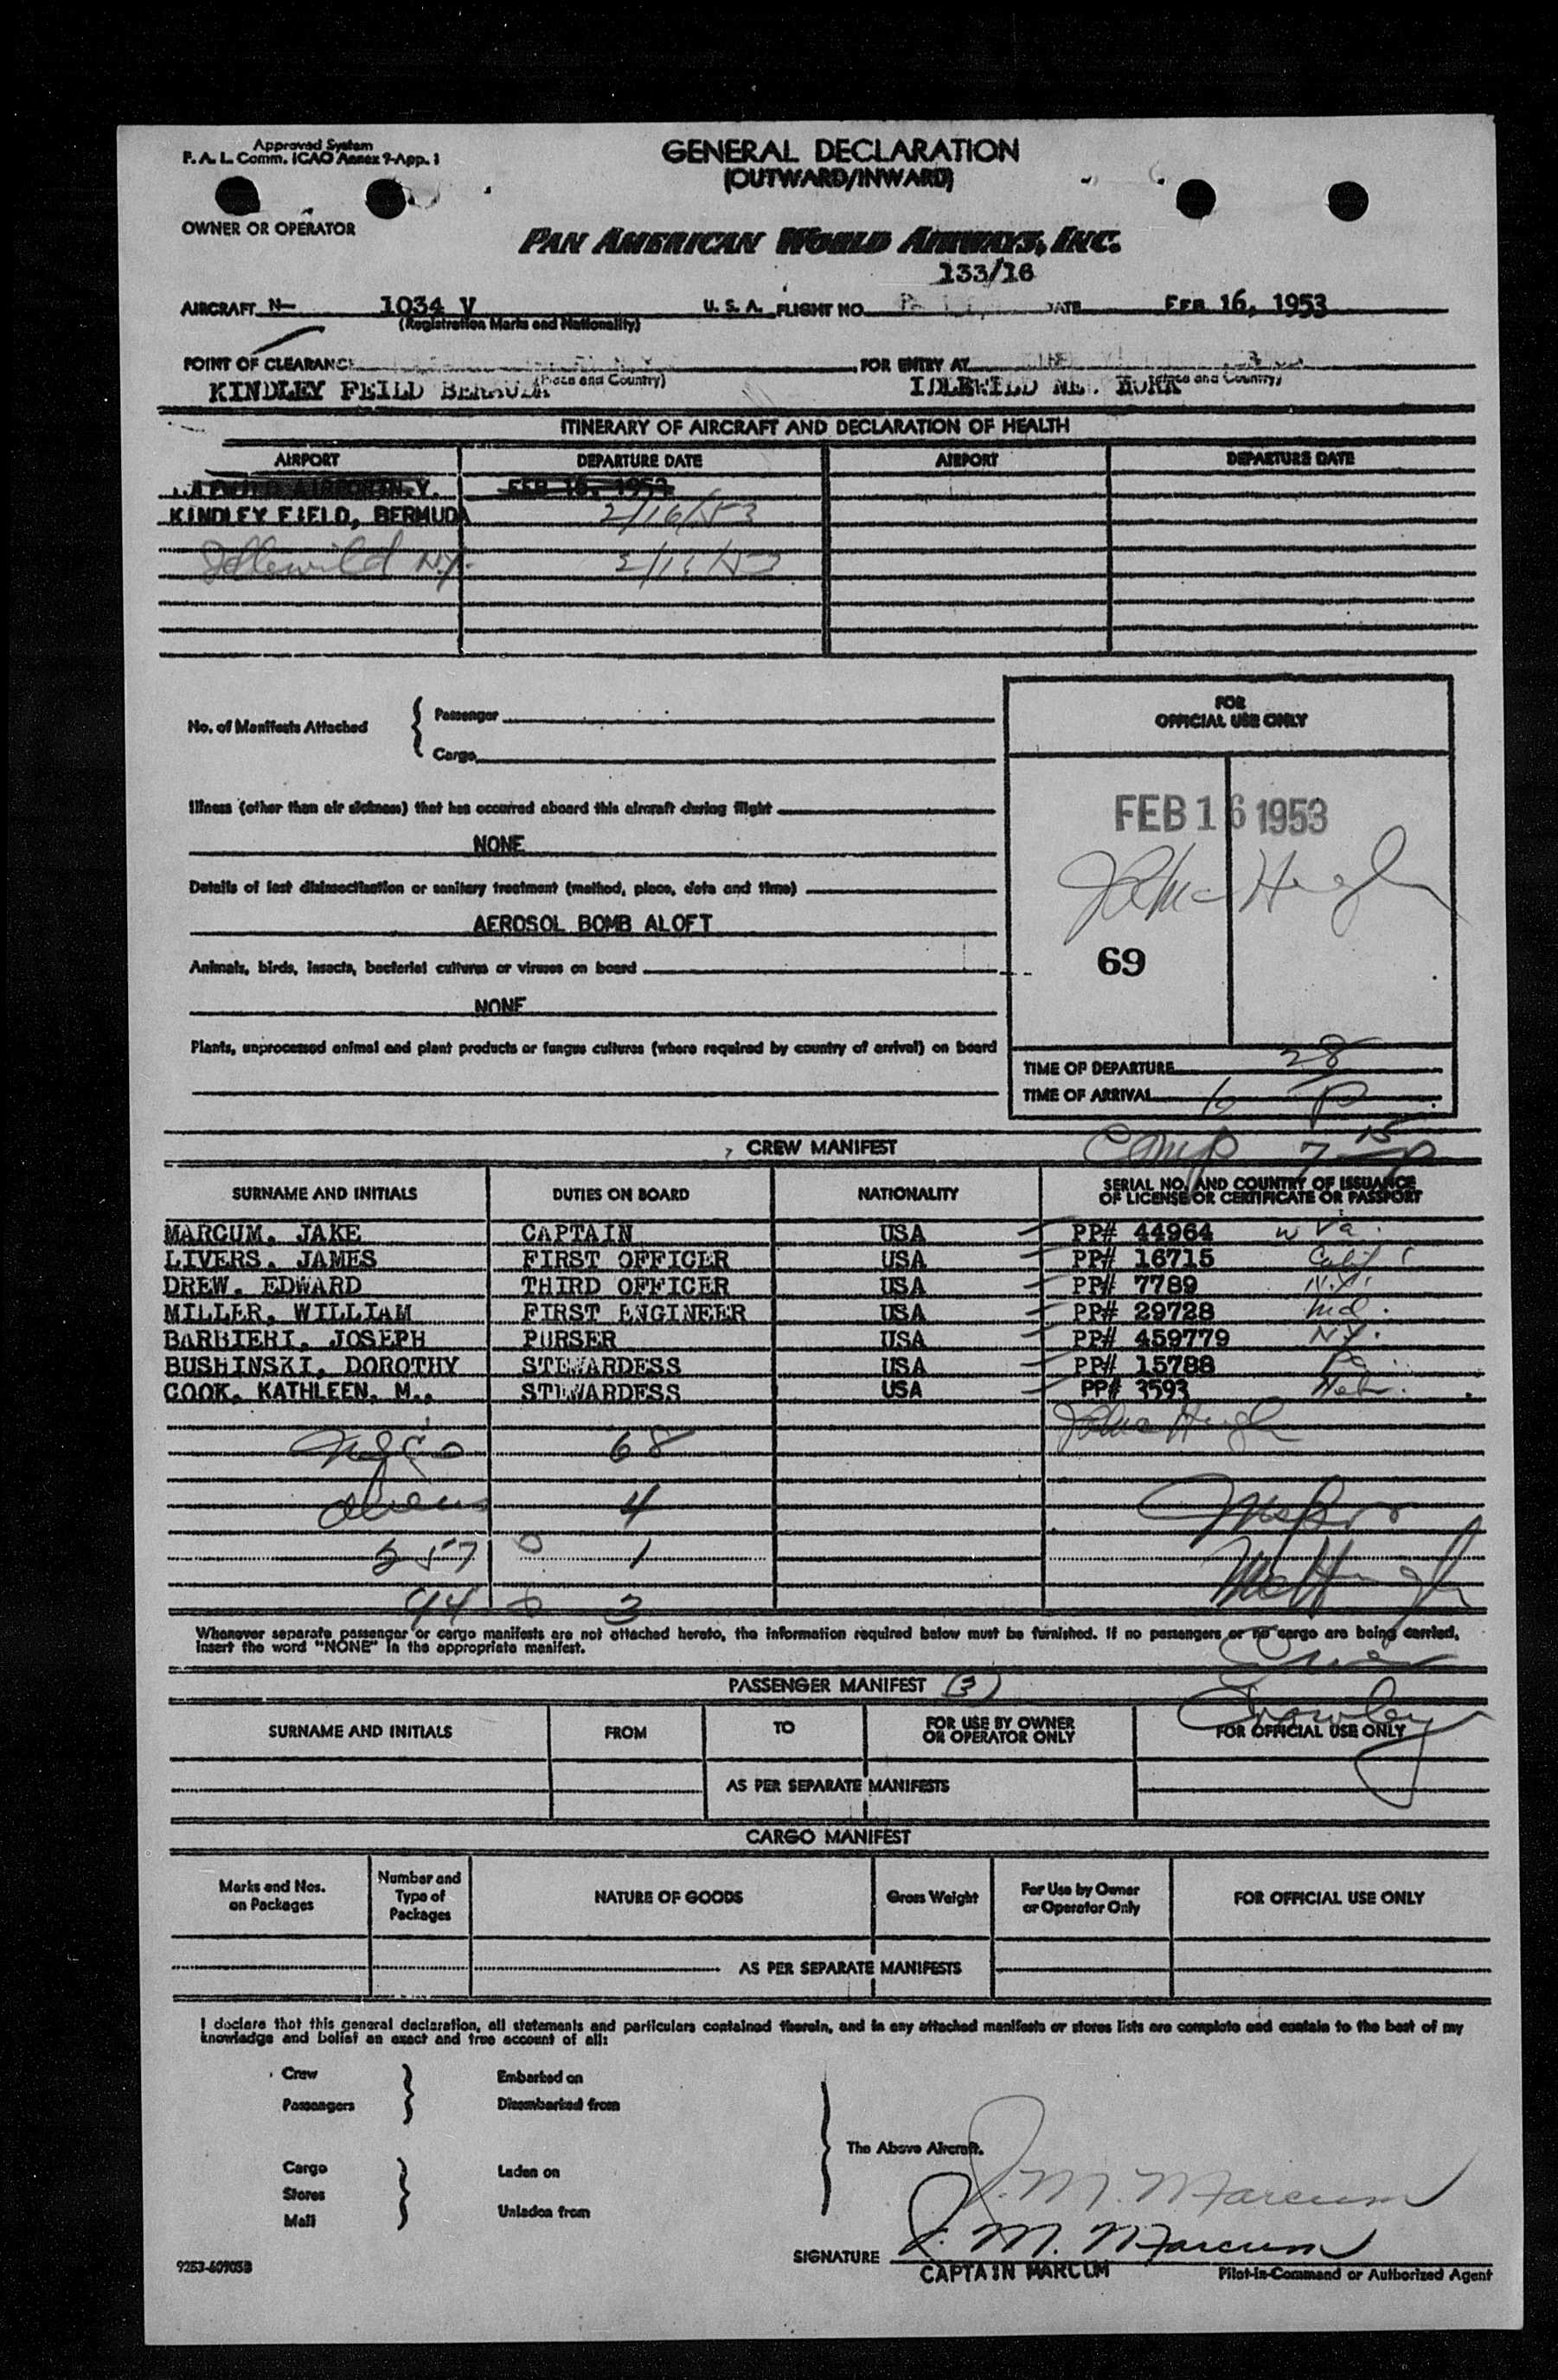 Approved System
F. A. L. Comm. ICAO Annex 9-App. 1
GENERAL DECLARATION
(OUTWARD/INWARD)
OWNER OR OPERATOR
PAN AMERICAN WORLD AIRWAYS, INC.
133/16
AIRCRAFT N- 1034 V U. S. A. FLIGHT NO. DATE FEB 16, 1953
(Registration Marks and Nationality)
POINT OF CLEARANCE FOR ENTRY AT
(Place and Country) (Place and Country)
KINDLEY FEILD BERMUDA IDLEWILD NEW YORK
ITINERARY OF AIRCRAFT AND DECLARATION OF HEALTH
AIRPORT DEPARTURE DATE AIRPORT DEPARTURE DATE
AIRPORT N.Y. FEB 16, 1953
KINDLEY FIELD, BERMUDA 2/16/53
Idlewild N.Y.
No. of Manifests Attached
Passenger
Cargo
FOR
OFFICIAL USE ONLY
Illness (other than air sickness) that has occurred aboard this aircraft during flight
NONE
FEB 16 1953
Details of last disinsectisation or sanitary treatment (method, place, date and time)
AEROSOL BOMB ALOFT
69
Animals, birds, insects, bacterial cultures or viruses on board
NONE
Plants, unprocessed animal and plant products or fungus cultures (where required by country of arrival) on board
TIME OF DEPARTURE
TIME OF ARRIVAL 6 28 P
Comp 7 15 p
CREW MANIFEST
SURNAME AND INITIALS DUTIES ON BOARD NATIONALITY SERIAL NO. AND COUNTRY OF ISSUANCE
OF LICENSE OR CERTIFICATE OR PASSPORT
MARCUM, JAKE CAPTAIN USA PP# 44964 W Va.
LIVERS, JAMES FIRST OFFICER USA PP# 16715 Calif
DREW, EDWARD THIRD OFFICER USA PP# 7789 N.Y.
MILLER, WILLIAM FIRST ENGINEER USA PP# 29728 Md.
BARBIERI, JOSEPH PURSER USA PP# 459779 N.Y.
BUSHINSKI, DOROTHY STEWARDESS USA PP# 15788 Pa.
COOK, KATHLEEN, M., STEWARDESS USA PP# 3593 Neb.
68
aliens 4
257 1
3
McHugh
Whenever separate passenger or cargo manifests are not attached hereto, the information required below must be furnished. If no passengers or no cargo are being carried,
insert the word "NONE" in the appropriate manifest.
PASSENGER MANIFEST (3)
Crowley
SURNAME AND INITIALS FROM TO FOR USE BY OWNER
OR OPERATOR ONLY FOR OFFICIAL USE ONLY
AS PER SEPARATE MANIFESTS
CARGO MANIFEST
Marks and Nos.
on Packages Number and
Type of
Packages NATURE OF GOODS Gross Weight For Use by Owner
or Operator Only FOR OFFICIAL USE ONLY
AS PER SEPARATE MANIFESTS
I declare that this general declaration, all statements and particulars contained therein, and in any attached manifests or stores lists are complete and contain to the best of my
knowledge and belief an exact and true account of all:
Crew Embarked on
Passengers Disembarked from
The Above Aircraft.
Cargo Laden on
Stores
Mail Unladen from
J. M. Marcum
SIGNATURE J. M. Marcum
CAPTAIN MARCUM Pilot-in-Command or Authorized Agent
9253-60905B